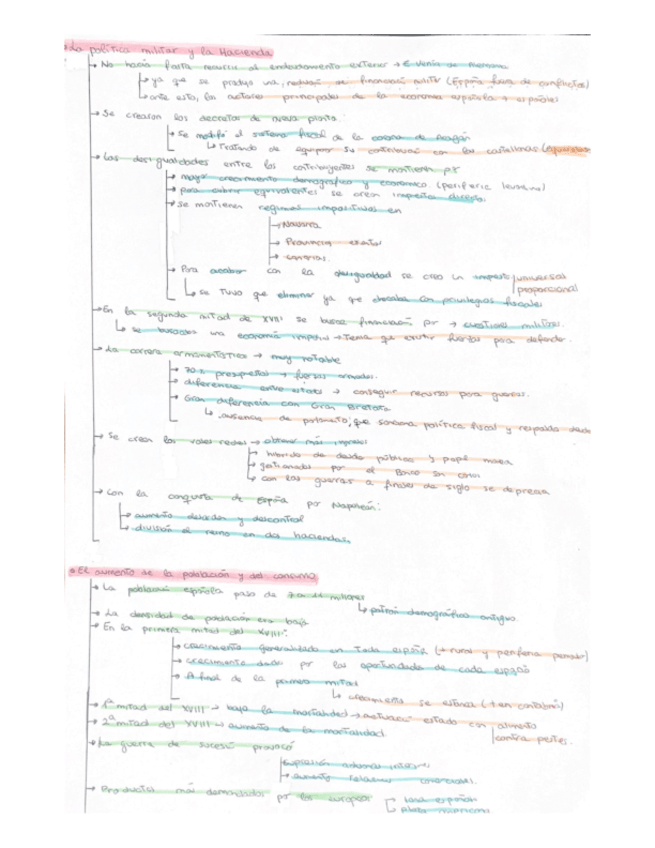 La política militar y la Hacienda
No hacía falta recurrir al endeudamiento exterior →
ya que se produjo una reducción de financiación militar (España fuera de conflictos)
ante esto, los actores principales de la economía española → españoles
Se crearon los decretos de nueva planta:
Se modificó el sistema fiscal de la corona de Aragón
Tratando de equiparar su contribución con los castellanos
Las desigualdades entre los contribuyentes se mantienen por
mayor crecimiento demográfico y económico (periferia levantina)
para cubrir equivalentes se crean impuestos directos
se mantienen regímenes impositivos en
Navarra
Provincias exentas
Canarias.
Para acabar con la desigualdad se creó un impuesto universal
proporcional
se tuvo que eliminar ya que chocaba con privilegios fiscales
En la segunda mitad de XVIII se busca financiación por → cuestiones militares.
se buscaba una economía → tiene que existir fuerzas para defender.
La carrera armamentística → muy notable
70% presupuestos → fuerzas armadas.
diferencia entre estados → conseguir recursos para guerras.
Gran diferencia con Gran Bretaña
ausencia de parlamento, que sostenga política fiscal y respalda deuda
Se crean los vales reales → obtener más ingresos
híbrido de deuda pública y papel moneda
gestionados por el Banco San Carlos
con las guerras a finales de siglo se deprecia
Con la conquista de España por Napoleón:
aumento deuda y descontrol
división el reino en dos haciendas.
El aumento de la población y del consumo
La población española pasa de 7 a 11 millones
patrón demográfico antiguo.
La densidad de población era baja
En la primera mitad del XVIII:
crecimiento generalizado en toda España (+ rural y periferia
crecimiento dado por las oportunidades de cada espacio
A final de la primera mitad
crecimiento se estanca
1ª mitad del XVIII → bajo la mortalidad → actuación estado con alimento
contra pestes.
2ª mitad del XVIII → aumento de la mortalidad.
La guerra de sucesión provocó
supresión aduanas internas
aumento relaciones comerciales.
Productos más demandados por los europeos
lana española
plata americana